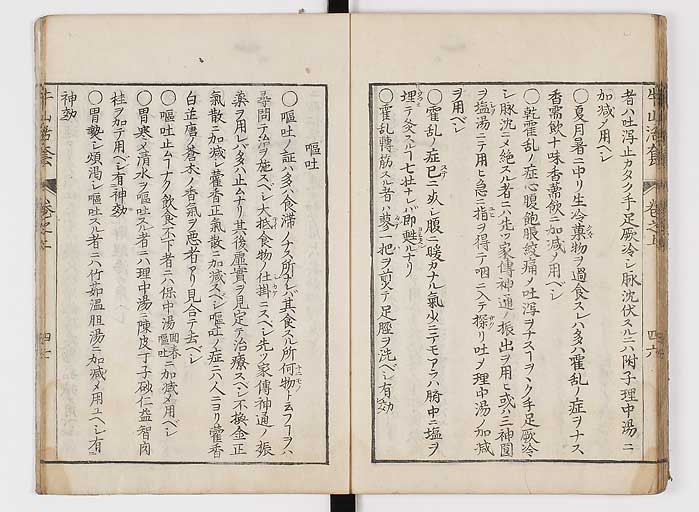 者ハ吐瀉止カタク手足厥冷シ脉沈伏スルニハ附子理中湯ニ
加減メ用ベシ
〇夏月暑ニ中リ生冷菓物ヲ過食スレハ多ハ霍乱ノ症ヲナス
香薷飲十味香薷飲ニ加減メ用ベシ
〇乾霍乱ノ症心腹飽脹絞痛メ吐瀉ヲナスヿヲヽク手足厥冷
シ脉沈ニメ絶スル者ニハ先ツ家傳神通ノ振出ヲ用ヒ或ハ三神圓
ヲ塩湯ニテ用ヒ急ニ指ヲ得テ咽ニ入テ探リ吐メ理中湯ノ加減
ヲ用ベシ
〇霍乱ノ症已ニ死シ腹ニ暖カナル氣少ニテモアラハ臍中ニ塩ヲ
埋テ灸スルヿ七壮ナレバ即甦ルナリ
〇霍乱轉筋スル者ハ蓼一把ヲ煎テ足脛ヲ洗ベシ有効
牛山活套
巻之上
四六
嘔吐
〇嘔吐ノ証ハ多ハ食滞ノナス所ナレバ其食スル所何物ト云フヿヲハ
尋問テ治ヲ施スベシ大抵食物ノ仕掛ニスベシ先ツ家傳神通ノ振
薬ヲ用レバ多ハ止ムナリ其後虚實ヲ見定テ治療スベシ不換金正
氣散ニ加減シ藿香正氣散ニ加減スベシ嘔吐ノ症ニハ人ニヨリ藿香
白芷唐ノ蒼朮ノ香氣ヲ悪者アリ見合テ去ベシ
〇嘔吐止ムヿナク飲食不下者ニハ保中湯回春嘔吐ニ加減メ用ベシ
〇胃寒メ清水ヲ嘔吐スル者ニハ理中湯ニ陳皮丁子砂仁益智肉
桂ヲ加テ用ベシ有神効
〇胃熱シ煩渇シ嘔吐スル者ニハ竹茹温胆湯ニ加減メ用ユベシ有
神効
牛山活套
巻之上
四七